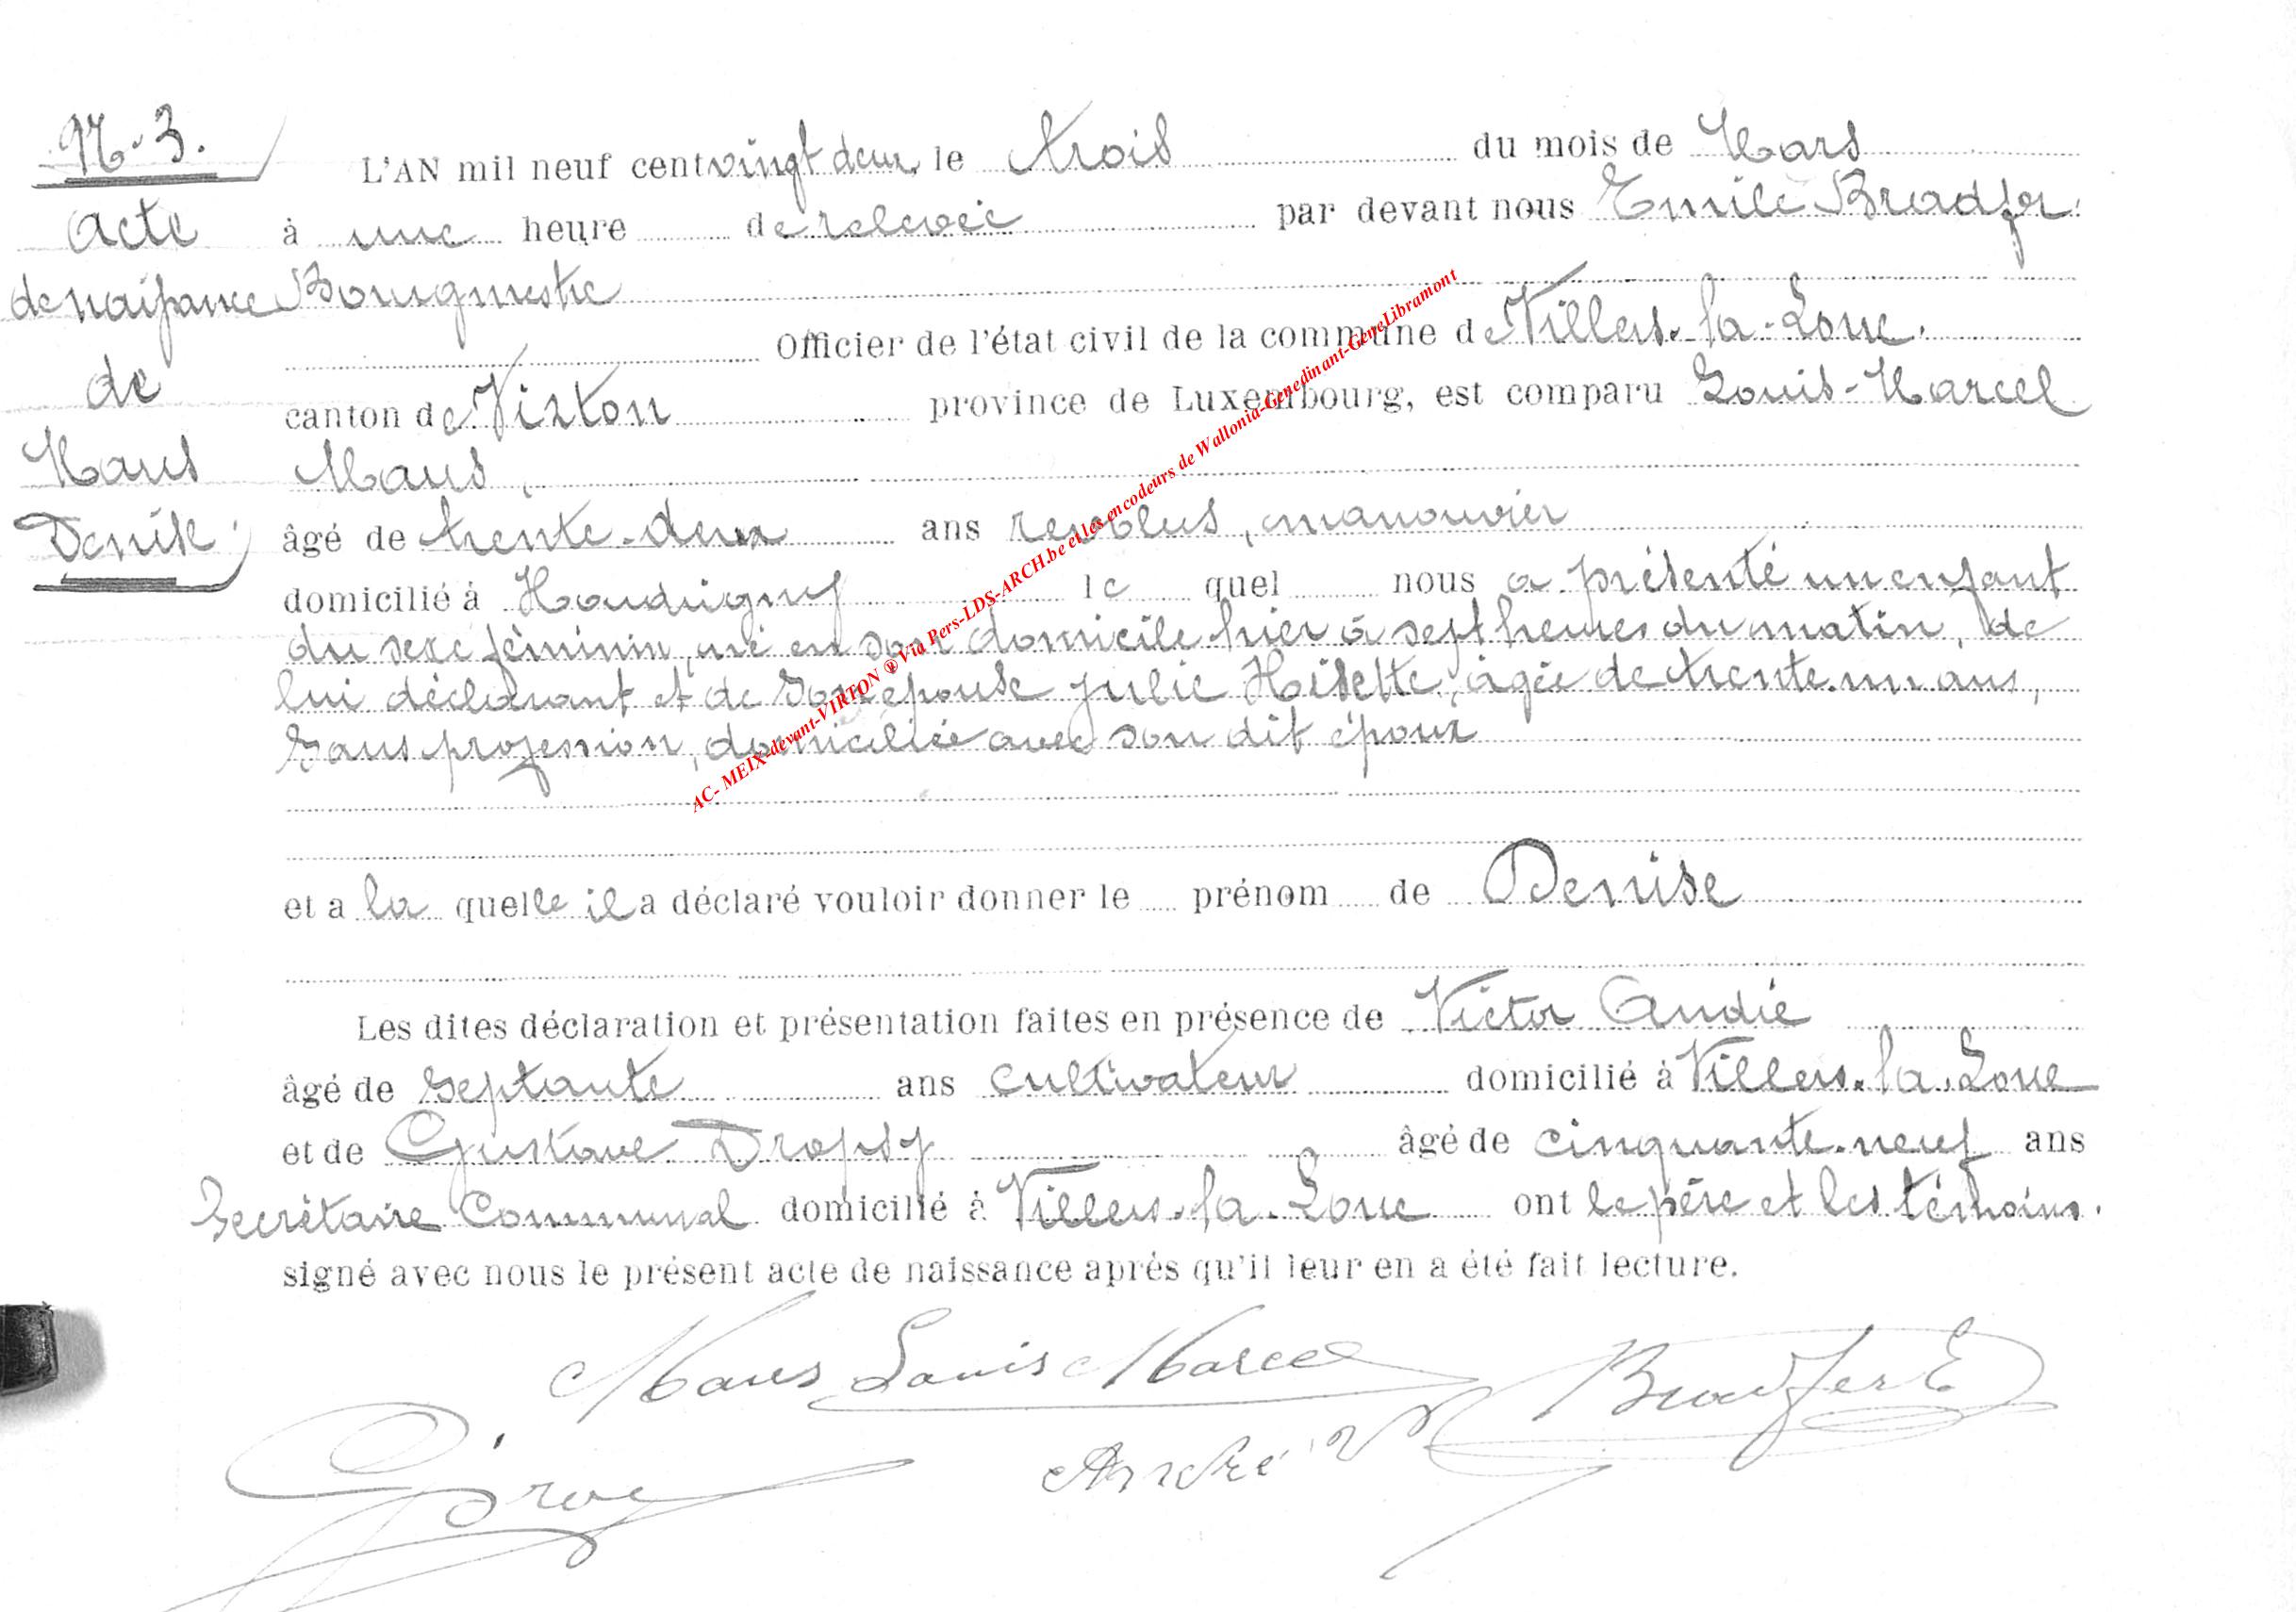 N. 3.
Acte
de naissance
de
Maus
Denise
L'AN mil neuf cent vingt deux, le trois du mois de Mars
à une heure de relevée par devant nous Emile Bradfer.
Bourgmestre
Officier de l'état civil de la commune de Villers-la-Loue.
canton de Virton province de Luxembourg, est comparu Louis-Marcel
Maus,
âgé de trente-deux ans revolus, manouvrier
domicilié à Houdrigny le quel nous a présenté un enfant
du sexe féminin, né en son domicile hier à sept heures du matin, de
lui déclarant et de son épouse Julie Hisette, âgée de trente-un ans,
sans profession, domiciliée avec son dit époux
et a la quelle il a déclaré vouloir donner le prénom de Denise
Les dites déclaration et présentation faites en présence de Victor André
âgé de septante ans cultivateur domicilié à Villers-la-Loue
et de Gustave Dropsy âgé de cinquante-neuf ans
Secrétaire Communal domicilié à Villers-la-Loue ont le père et les témoins.
signé avec nous le présent acte de naissance après qu'il leur en a été fait lecture.
Maus Louis Marcel
Bradfer E
André V
AC- MEIX-devant-VIRTON ® Via Pers-LDS-ARCH.be et les encodeurs de Wallonia-Genedinant-GeneLibramont